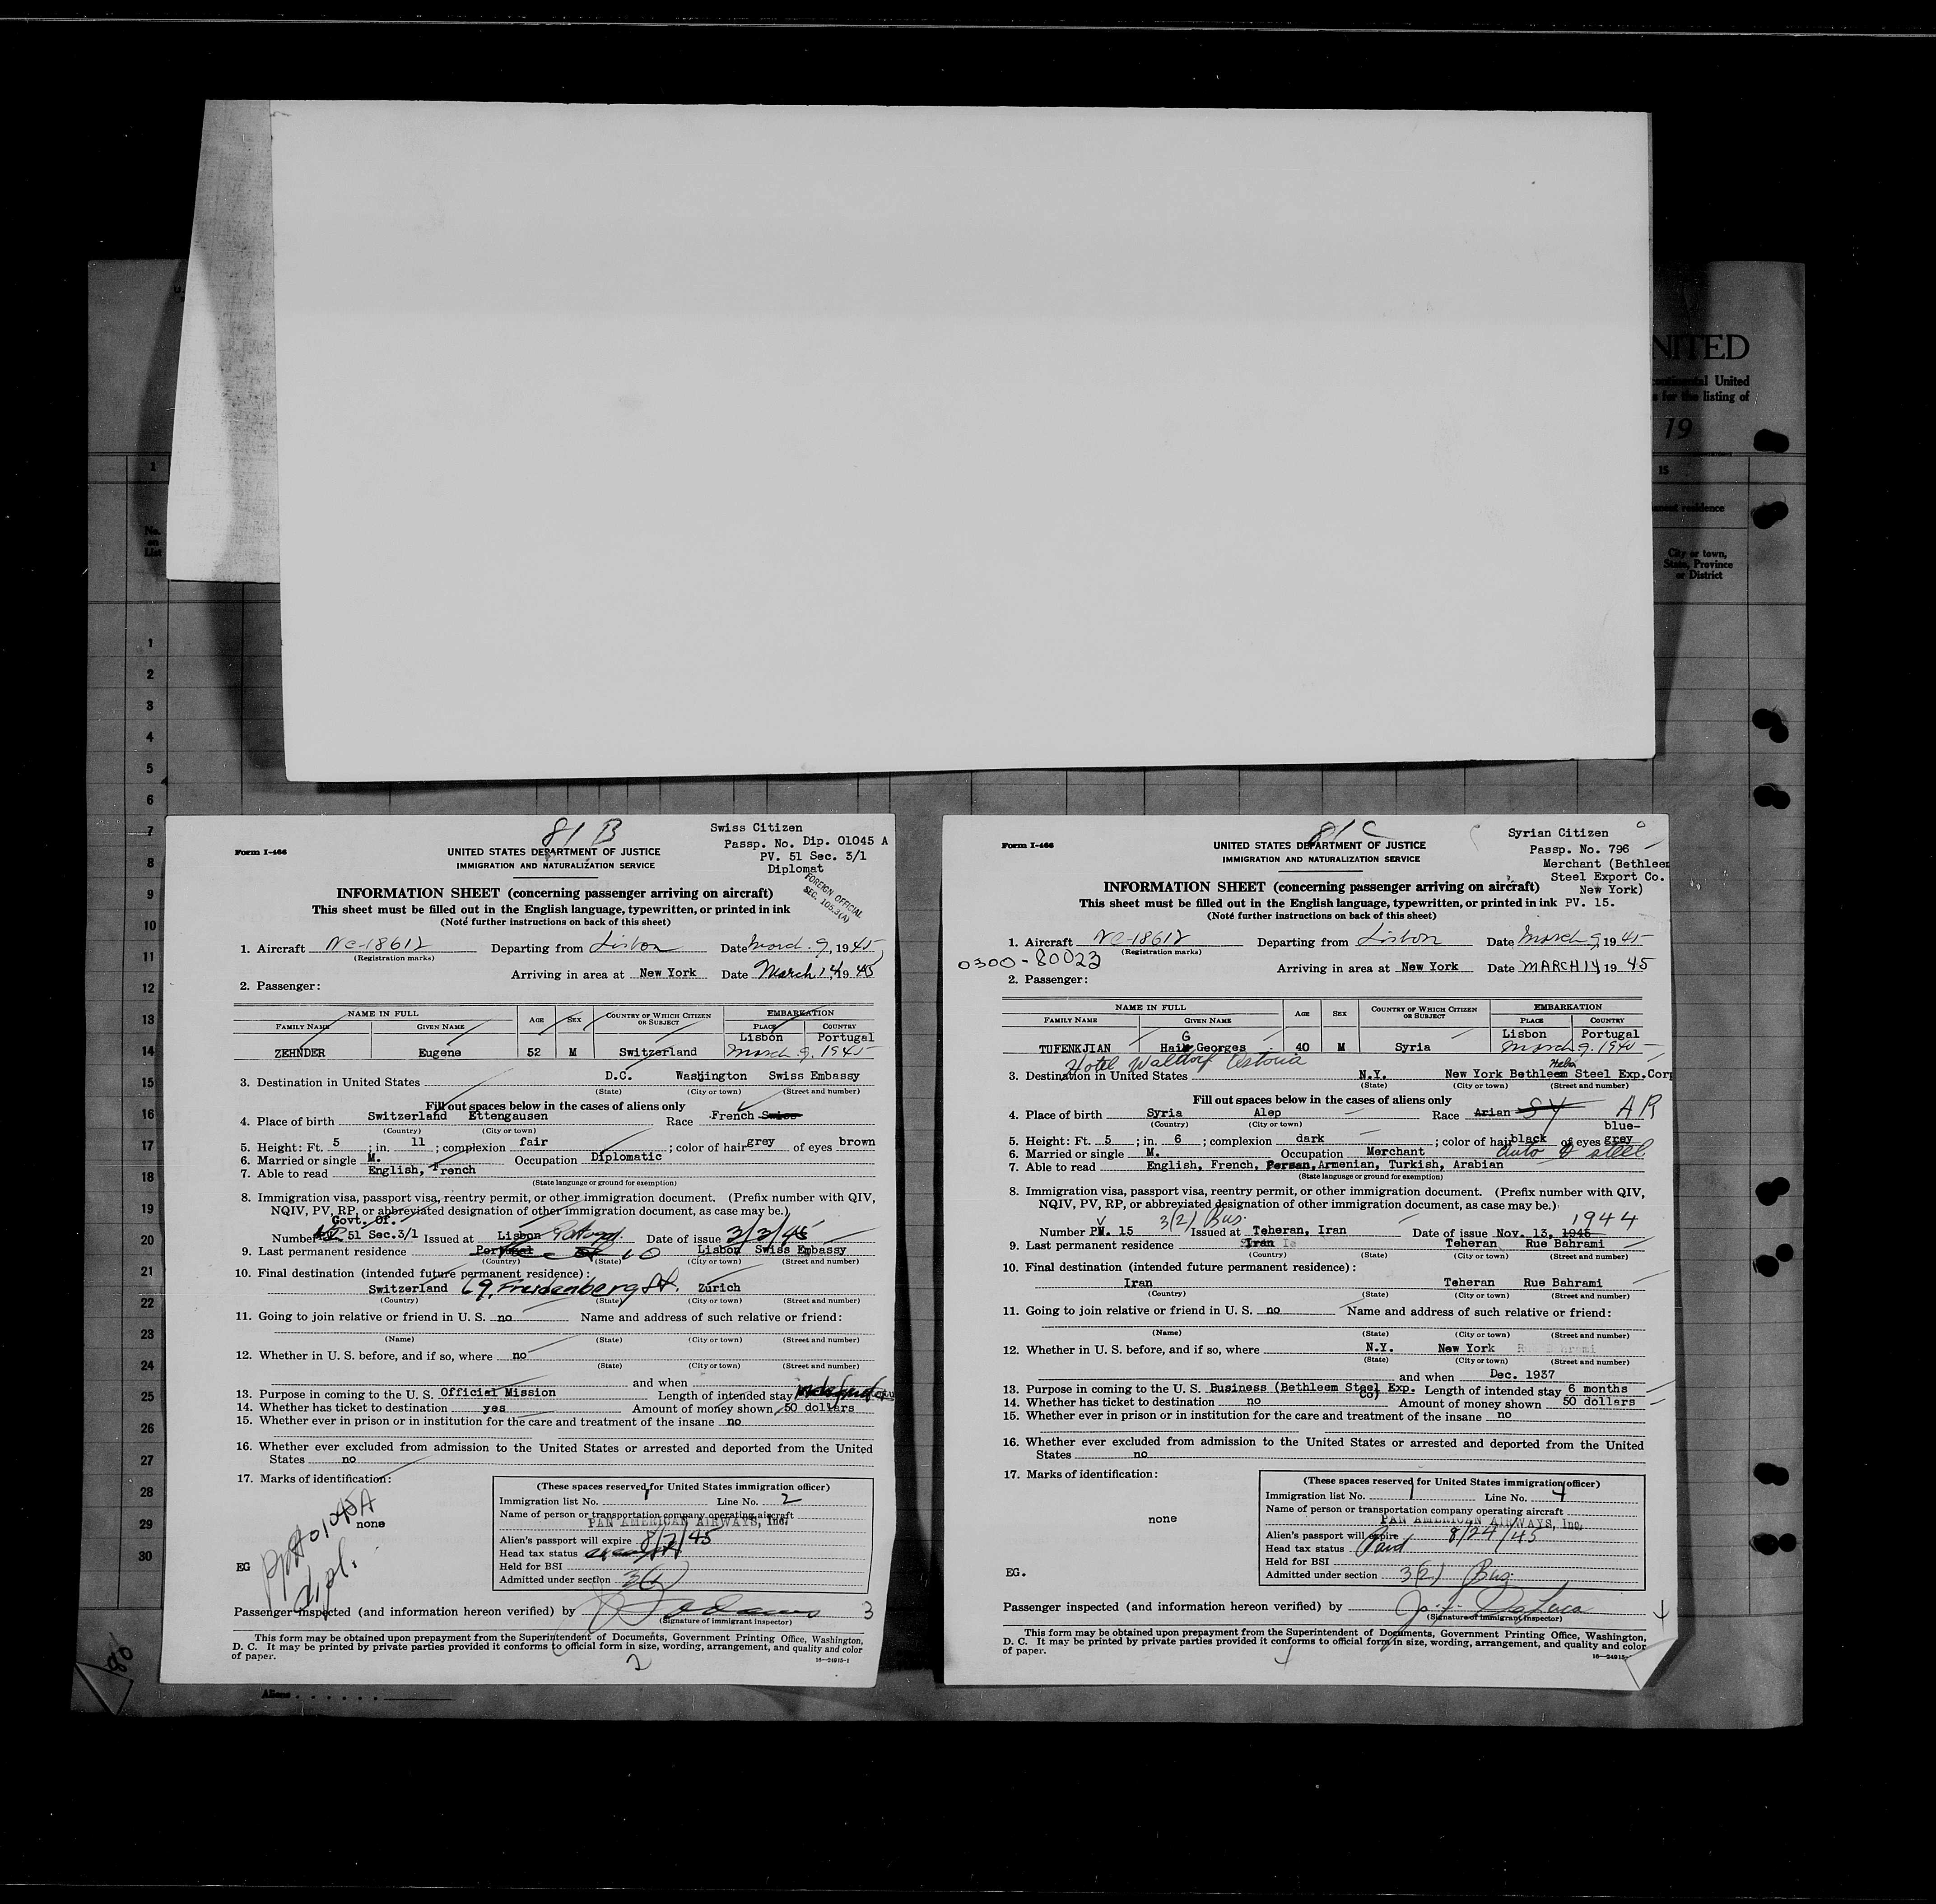 NITED
continental United
s for the listing of
19
15
City or town,
State, Province
or District
No.
on
List
1
1
2
3
4
5
6
7
8
9
10
11
12
13
14
15
16
17
18
19
20
21
22
23
24
25
26
27
28
29
30
80
Aliens
81 B
Swiss Citizen
Passp. No. Dip. 01045 A
PV. 51 Sec. 3/1
Diplomat
FOREIGN OFFICIAL
SEC. 105.3(A)
Form I-466
UNITED STATES DEPARTMENT OF JUSTICE
IMMIGRATION AND NATURALIZATION SERVICE
INFORMATION SHEET (concerning passenger arriving on aircraft)
This sheet must be filled out in the English language, typewritten, or printed in ink
(Note further instructions on back of this sheet)
1. Aircraft NC-18612 Departing from Lisbon Date March 9, 1945
(Registration marks)
Arriving in area at New York Date March 14 1945
2. Passenger:
NAME IN FULL AGE SEX COUNTRY OF WHICH CITIZEN OR SUBJECT EMBARKATION
FAMILY NAME GIVEN NAME PLACE COUNTRY
Lisbon Portugal
ZEHNDER Eugene 52 M Switzerland March 9, 1945
3. Destination in United States D.C. Washington Swiss Embassy
(State) (City or town) (Street and number)
Fill out spaces below in the cases of aliens only
4. Place of birth Switzerland Ettengausen Race French Swiss
(Country) (City or town)
5. Height: Ft. 5 ; in. 11 ; complexion fair ; color of hair grey of eyes brown
6. Married or single M. Occupation Diplomatic
7. Able to read English, French
(State language or ground for exemption)
8. Immigration visa, passport visa, reentry permit, or other immigration document. (Prefix number with QIV,
NQIV, PV, RP, or abbreviated designation of other immigration document, as case may be.)
Govt. Of.
Number 51 Sec.3/1 Issued at Lisbon Portugal Date of issue 3/3/45
9. Last permanent residence Portugal Lisbon Swiss Embassy
(Country) (State) (City or town) (Street and number)
10. Final destination (intended future permanent residence):
Switzerland 69, Freudenberg St. Zürich
(Country) (State) (City or town) (Street and number)
11. Going to join relative or friend in U. S. no Name and address of such relative or friend:
(Name) (State) (City or town) (Street and number)
12. Whether in U. S. before, and if so, where no
(State) (City or town) (Street and number)
and when
13. Purpose in coming to the U. S. Official Mission Length of intended stay
14. Whether has ticket to destination yes Amount of money shown 50 dollars
15. Whether ever in prison or in institution for the care and treatment of the insane no
16. Whether ever excluded from admission to the United States or arrested and deported from the United
States no
17. Marks of identification:
none
Ppt 01045A
dipl.
EG
(These spaces reserved for United States immigration officer)
Immigration list No. 1 Line No. 2
Name of person or transportation company operating aircraft
PAN AMERICAN AIRWAYS, Inc.
Alien's passport will expire 8/2/45
Head tax status
Held for BSI
Admitted under section 3(1)
Passenger inspected (and information hereon verified) by 3
(Signature of immigrant inspector)
This form may be obtained upon prepayment from the Superintendent of Documents, Government Printing Office, Washington,
D. C. It may be printed by private parties provided it conforms to official form in size, wording, arrangement, and quality and color
of paper.
16—24915-1
2
81 C
Syrian Citizen
Passp. No. 796
Merchant (Bethleem
Steel Export Co.
New York)
PV. 15.
Form I-466
UNITED STATES DEPARTMENT OF JUSTICE
IMMIGRATION AND NATURALIZATION SERVICE
INFORMATION SHEET (concerning passenger arriving on aircraft)
This sheet must be filled out in the English language, typewritten, or printed in ink
(Note further instructions on back of this sheet)
1. Aircraft NC-18612 Departing from Lisbon Date March 9, 1945
(Registration marks)
0300-80023
Arriving in area at New York Date MARCH 14 1945
2. Passenger:
NAME IN FULL AGE SEX COUNTRY OF WHICH CITIZEN OR SUBJECT EMBARKATION
FAMILY NAME GIVEN NAME PLACE COUNTRY
G Lisbon Portugal
TUFENKJIAN Haig Georges 40 M Syria March 9, 1945
Hotel Waldorf Astoria
3. Destination in United States N.Y. New York Bethleem Steel Exp.Corp
(State) (City or town) (Street and number)
Fill out spaces below in the cases of aliens only
4. Place of birth Syria Alep Race Arian SY AR
(Country) (City or town)
blue-
5. Height: Ft. 5 ; in. 6 ; complexion dark ; color of hair black of eyes grey
6. Married or single M. Occupation Merchant auto & steel
7. Able to read English, French, Persan, Armenian, Turkish, Arabian
(State language or ground for exemption)
8. Immigration visa, passport visa, reentry permit, or other immigration document. (Prefix number with QIV,
NQIV, PV, RP, or abbreviated designation of other immigration document, as case may be.)
3(2) Bus. 1944
Number PV. 15 Issued at Teheran, Iran Date of issue Nov. 13, 1945
9. Last permanent residence Iran Teheran Rue Bahrami
(Country) (State) (City or town) (Street and number)
10. Final destination (intended future permanent residence):
Iran Teheran Rue Bahrami
(Country) (State) (City or town) (Street and number)
11. Going to join relative or friend in U. S. no Name and address of such relative or friend:
(Name) (State) (City or town) (Street and number)
12. Whether in U. S. before, and if so, where N.Y. New York
(State) (City or town) (Street and number)
and when Dec. 1937
13. Purpose in coming to the U. S. Business (Bethleem Steel Exp. Co) Length of intended stay 6 months
14. Whether has ticket to destination no Amount of money shown 50 dollars
15. Whether ever in prison or in institution for the care and treatment of the insane no
16. Whether ever excluded from admission to the United States or arrested and deported from the United
States no
17. Marks of identification:
none
EG.
(These spaces reserved for United States immigration officer)
Immigration list No. 1 Line No. 4
Name of person or transportation company operating aircraft
PAN AMERICAN AIRWAYS, Inc.
Alien's passport will expire 8/24/45
Head tax status Paid
Held for BSI
Admitted under section 3(2) Bus
Passenger inspected (and information hereon verified) by
(Signature of immigrant inspector)
This form may be obtained upon prepayment from the Superintendent of Documents, Government Printing Office, Washington,
D. C. It may be printed by private parties provided it conforms to official form in size, wording, arrangement, and quality and color
of paper.